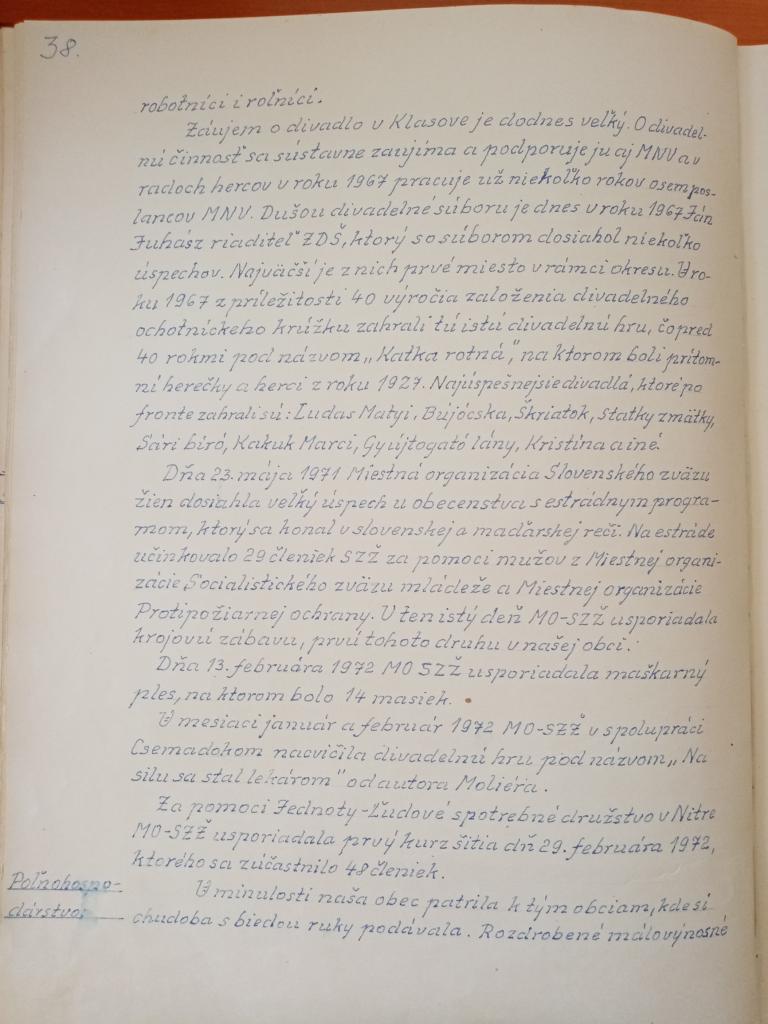 38.
robotníci i roľníci.
Záujem o divadlo v Klasove je dodnes veľký. O divadel-
nú činnosť sa sústavne zaujíma a podporuje ju aj MNV a v
radoch hercov v roku 1967 pracuje už niekoľko rokov osem pos-
lancov MNV. Dušou divadelné súboru je dnes v roku 1967 Ján
Juhász riaditeľ ZDŠ, ktorý so súborom dosiahol niekoľko
úspechov. Najväčší je z nich prvé miesto v rámci okresu. V ro-
ku 1967 z príležitosti 40 výročia založenia divadelného
ochotníckeho krúžku zahrali tú istú divadelnú hru, čo pred
40 rokmi pod názvom „Katka rotná", na ktorom boli prítom-
ní herečky a herci z roku 1927. Najúspešnejsie divadlá, ktoré po
fronte zahrali sú: Ludas Matyi, Bújócska, Škriatok, Statky zmätky,
Sári bíró, Kakuk Marci, Gyújtogató lány, Kristína a iné.
Dňa 23. mája 1971 Miestná organizácia Slovenského zväzu
žien dosiahla veľký úspech u obecenstva s estrádnym progra-
mom, ktorý sa konal v slovenskej a maďarskej reči. Na estráde
učinkovalo 29 členiek SZŽ za pomoci mužov z Miestnej organi-
zácie Socialistického zväzu mládeže a Miestnej organizácie
Protipožiarnej ochrany. V ten istý deň MO-SZŽ usporiadala
krojovú zábavu, prvú tohoto druhu v našej obci.
Dňa 13. februára 1972 MO SZŽ usporiadala maškarný
ples, na ktorom bolo 14 masiek.
V mesiaci január a február 1972 MO-SZŽ v spolupráci
Csemadokom nacvičila divadelnú hru pod názvom „Na
silu sa stal lekárom" od autora Moliéra.
Za pomoci Jednoty-Ľudové spotrebné družstvo v Nitre
MO-SZŽ usporiadala prvý kurz šitia dň 29. februára 1972,
ktorého sa zúčastnilo 48 členiek.
Poľnohospo-
dárstvo:
V minulosti naša obec patrila k tým obciam, kde si
chudoba s biedou ruky podávala. Rozdrobené málovýnosné